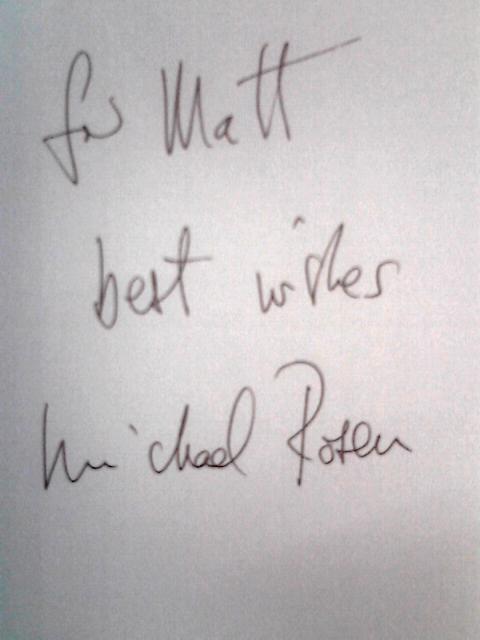 for Matt
best wishes
Michael Rosen